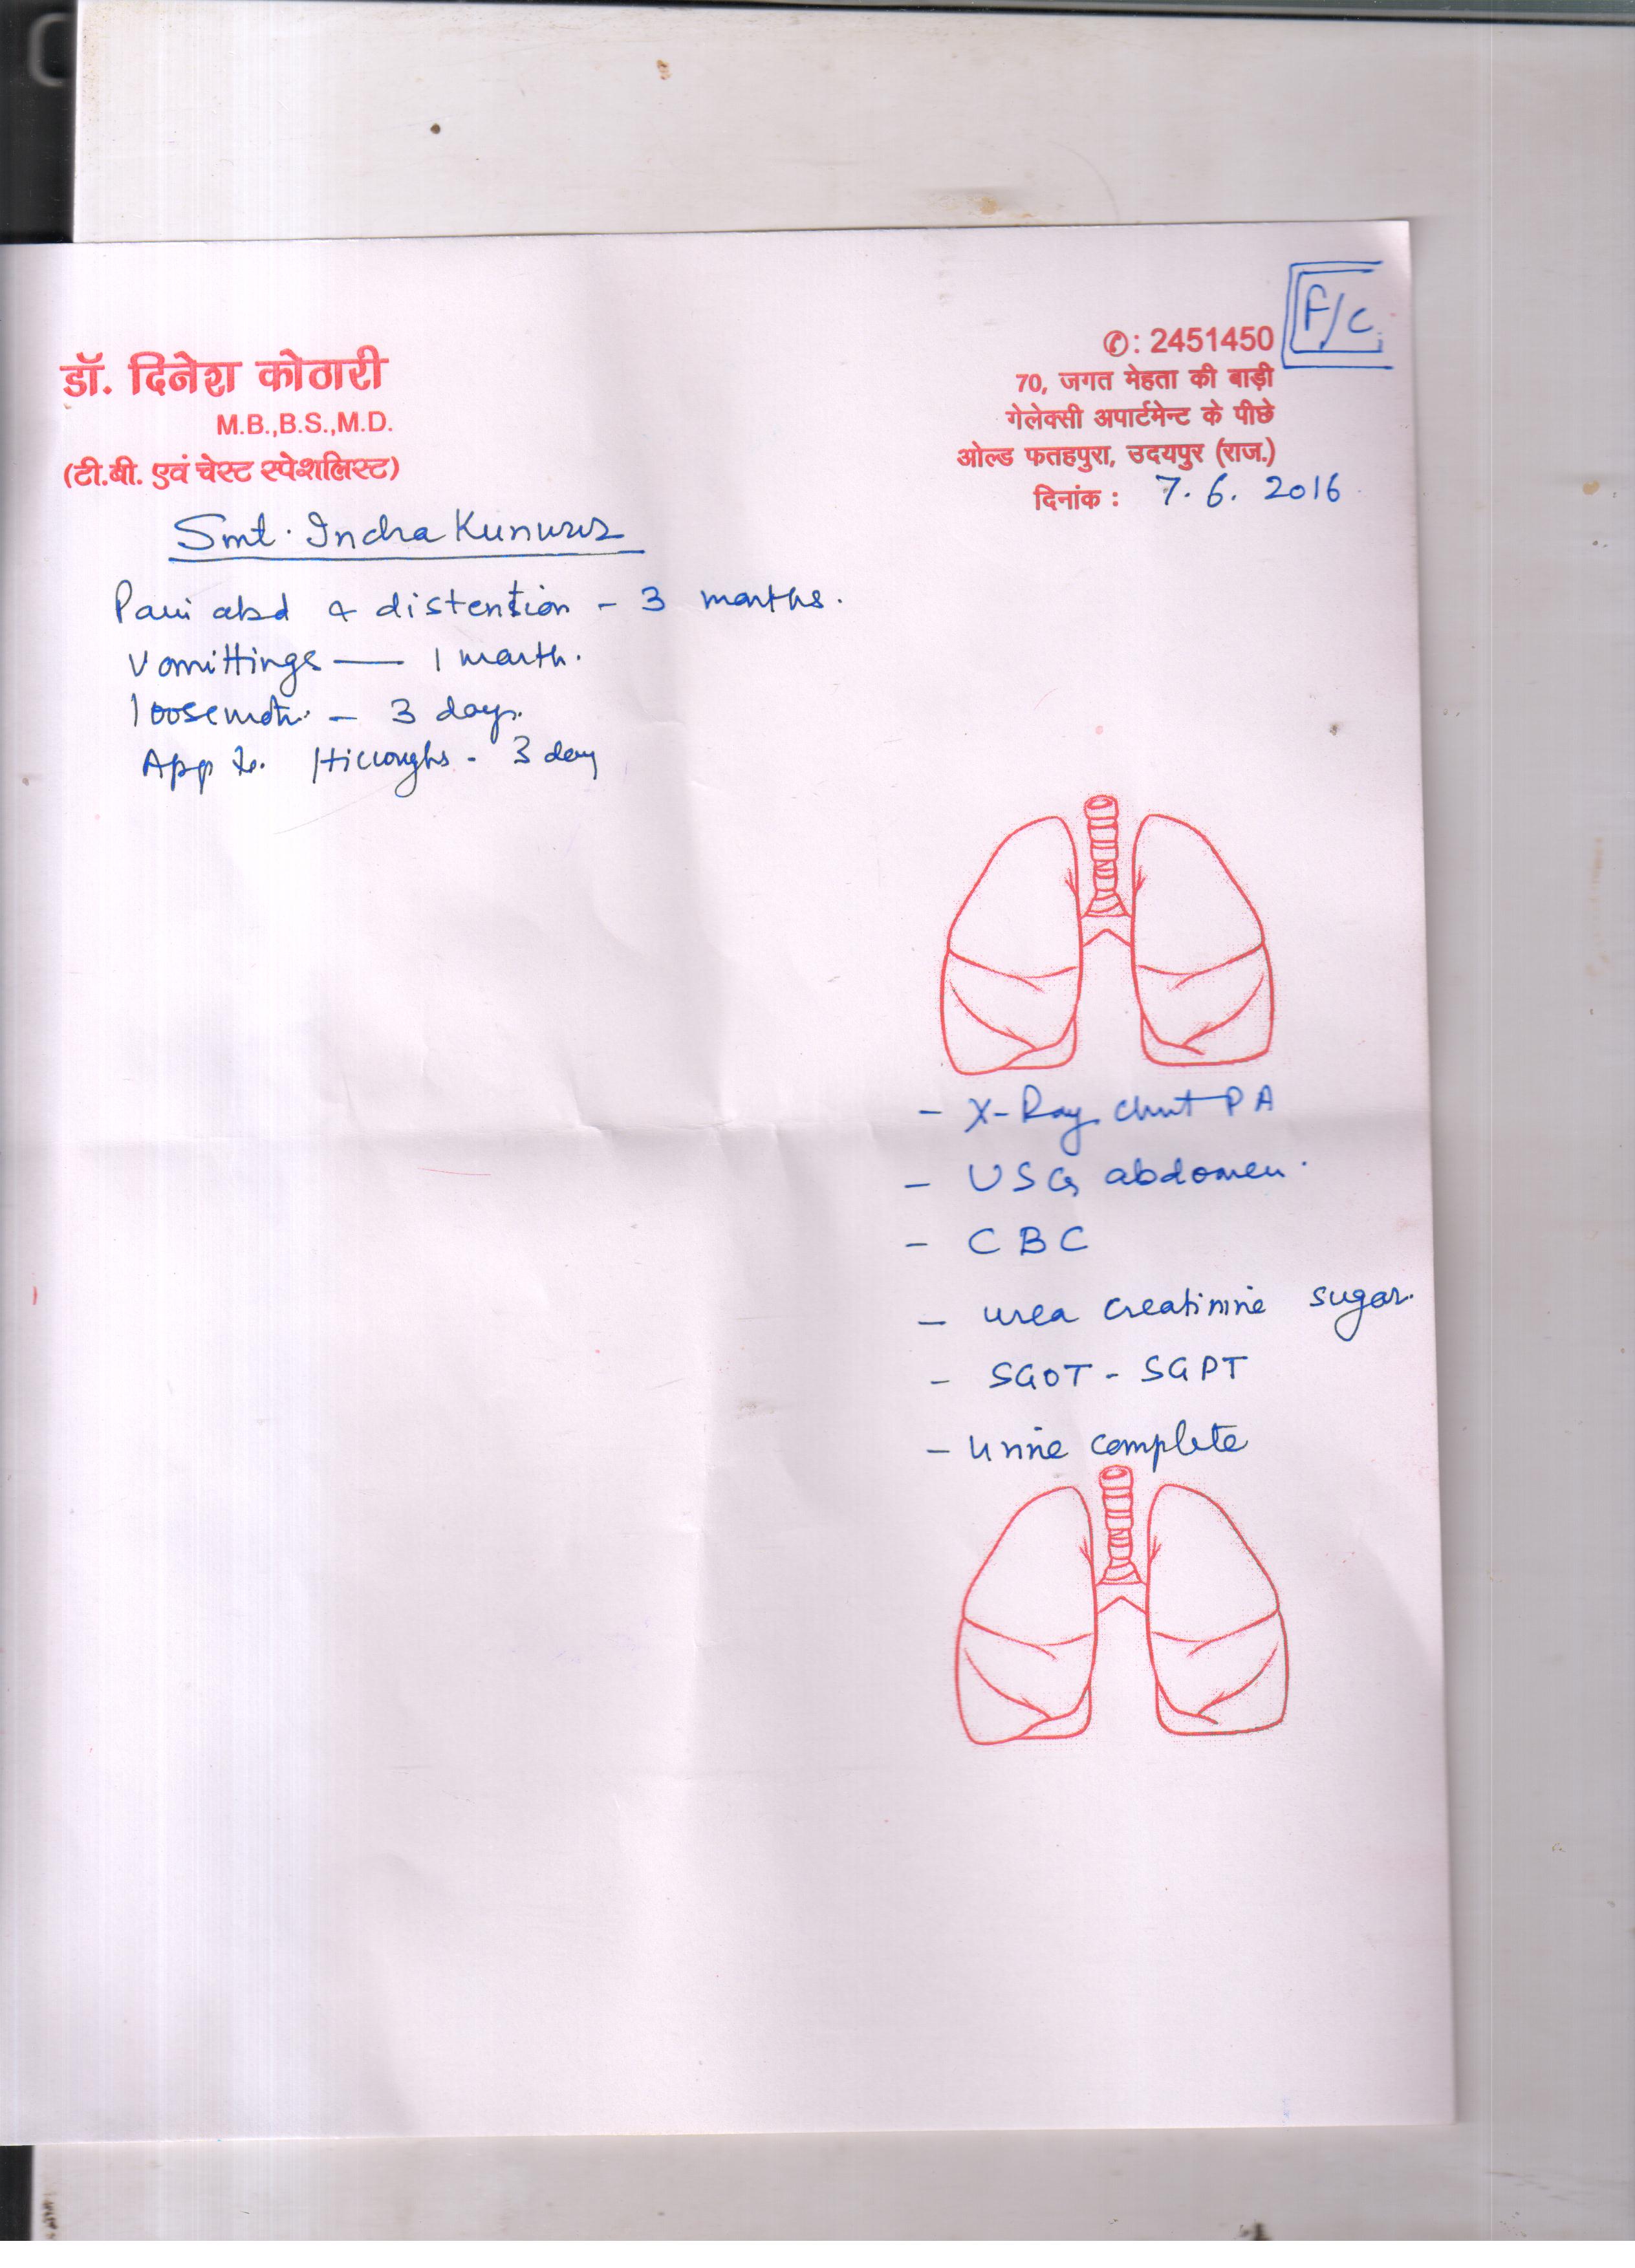 F/C
✆: 2451450
70, जगत मेहता की बाड़ी
गेलेक्सी अपार्टमेन्ट के पीछे
ओल्ड फतहपुरा, उदयपुर (राज.)
दिनांक : 7. 6. 2016
डॉ. दिनेश कोठारी
M.B.,B.S.,M.D.
(टी.बी. एवं चेस्ट स्पेशलिस्ट)
Smt. Indra Kunwar
Pain abd & distention - 3 months.
Vomittings — 1 month.
loose motn. - 3 days.
App Hiccoughs - 3 day
- X-Ray chest PA
- USG abdomen.
- CBC
- urea creatinine sugar.
- SGOT - SGPT
- Urine complete